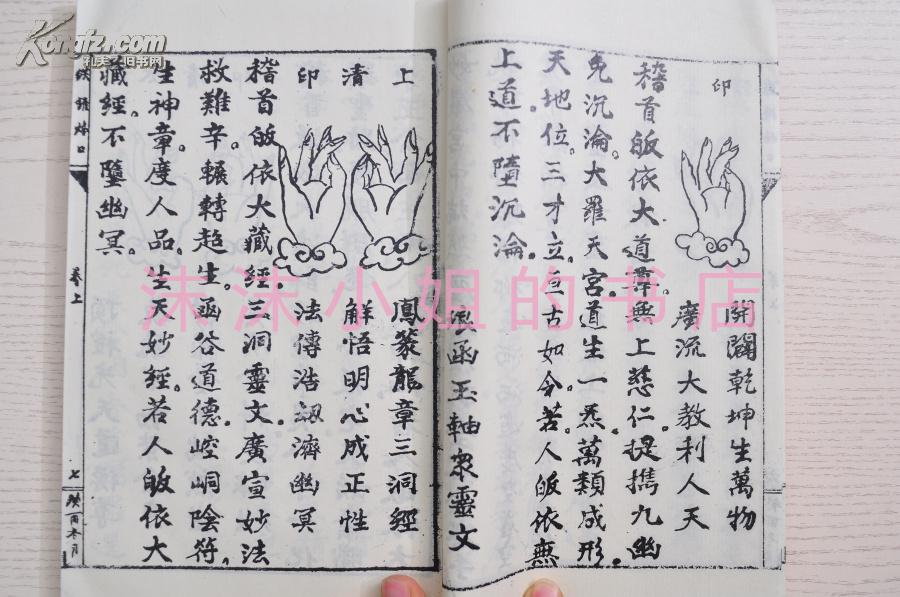 Kongfz.com
孔夫子旧书网
印
開闢乾坤生萬物
廣流大教利人天
稽首皈依大道尊無上慈仁提携九幽
免沉淪大羅天宮道生一炁萬類成形
天地位三才立亘古如今若人皈依無
上道不墮沉淪
函玉軸衆靈文
上
鳳篆龍章三洞經
清
解悟明心成正性
印
法傳浩刼濟幽冥
稽首皈依大藏經三洞靈文廣宣妙法
救難辛輾轉超生函谷道德崆峒陰符
生神章度人品生天妙經若人皈依大
藏經不墮幽冥
卷上
七
沫沫小姐的书店